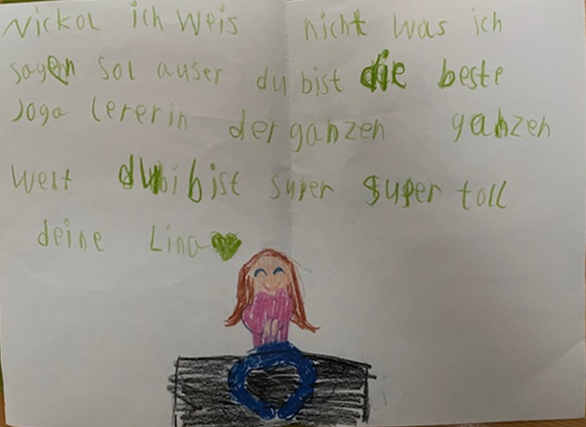 Nickol ich weis nicht was ich
sagen sol auser du bist die beste
Joga lererin der ganzen ganzen
welt du bist super super toll
deine Lina